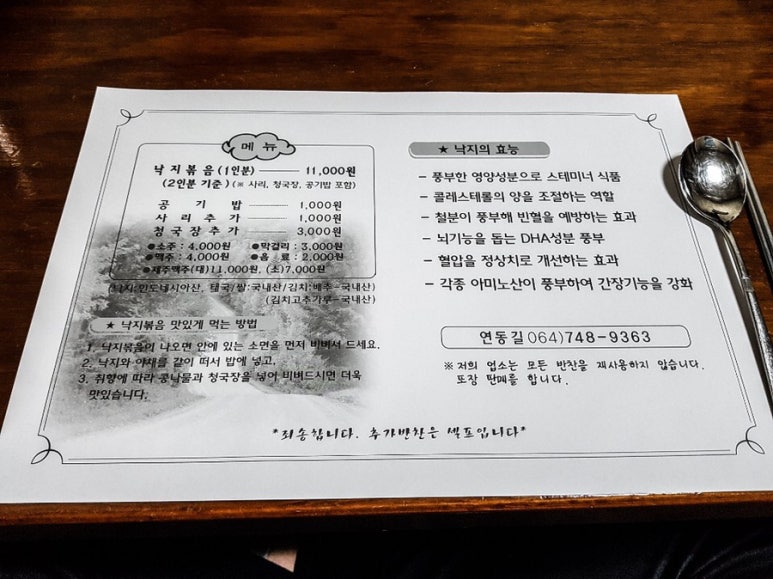 메 뉴
낙지볶음 (1인분) 11,000원
(2인분 기준) (※ 사리, 청국장, 공기밥 포함)
공 기 밥 1,000원
사 리 추 가 1,000원
청국장추가 3,000원
●소주 : 4,000원 ●막걸리 : 3,000원
●맥주 : 4,000원 ●음 료 : 2,000원
●제주맥주(대)11,000원, (소)7,000원
(낙지:인도네시아산, 태국/쌀:국내산/김치:배추-국내산)
(김치고추가루-국내산)
★ 낙지볶음 맛있게 먹는 방법
1. 낙지볶음이 나오면 안에 있는 소면을 먼저 비벼서 드세요.
2. 낙지와 야채를 같이 떠서 밥에 넣고,
3. 취향에 따라 콩나물과 청국장을 넣어 비벼드시면 더욱
맛있습니다.
★ 낙지의 효능
- 풍부한 영양성분으로 스테미너 식품
- 콜레스테롤의 양을 조절하는 역할
- 철분이 풍부해 빈혈을 예방하는 효과
- 뇌기능을 돕는 DHA성분 풍부
- 혈압을 정상치로 개선하는 효과
- 각종 아미노산이 풍부하여 간장기능을 강화
연동길 064)748-9363
※저희 업소는 모든 반찬을 재사용하지 않습니다.
또장 판매를 합니다.
*죄송합니다. 추가반찬은 셀프입니다*